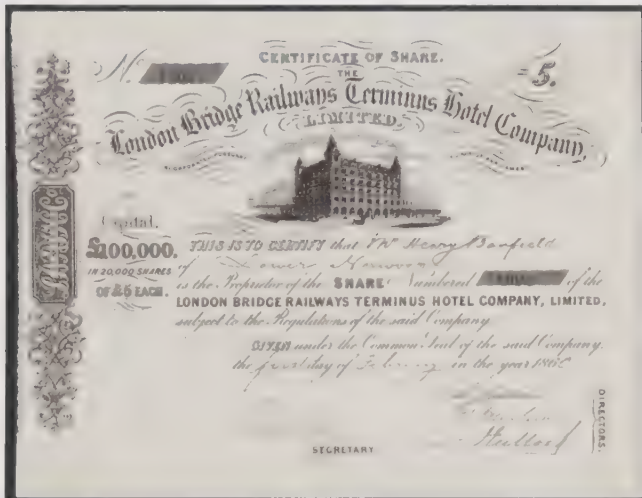 CERTIFICATE OF SHARE.
No.
£5.
THE
London Bridge Railways Terminus Hotel Company,
LIMITED,
Capital.
£100,000.
IN 20,000 SHARES
OF £5 EACH.
THIS IS TO CERTIFY that Mr Henry Barfield
of Lower Norwood
is the Proprietor of the SHARE Numbered of the
LONDON BRIDGE RAILWAYS TERMINUS HOTEL COMPANY, LIMITED,
subject to the Regulations of the said Company.
GIVEN under the Common Seal of the said Company.
the first day of February in the year
DIRECTORS.
SECRETARY